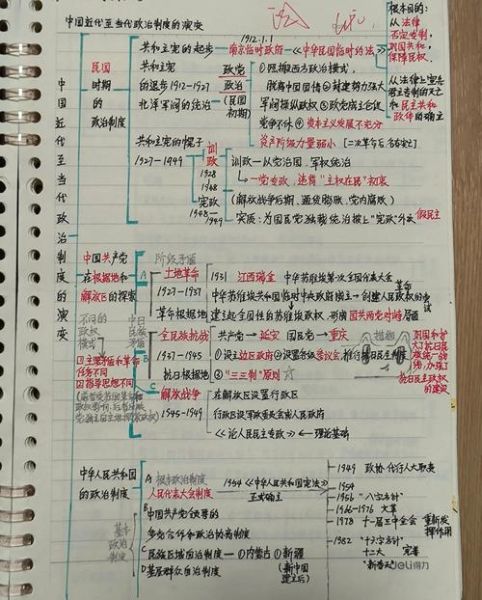 中国近代至当代政治制度的演变
根本目的:
从法律
否定专制,
巩固共和,
保障民权.
1912.1.1
共和立宪的起步
南京临时政府
《中华民国临时约法》
民国
时期
的
政治制度
共和立宪
的退步 1912-1927
北洋军阀的统治
政党
政治
(民国
初期)
①照搬西方政治模式,
脱离中国国情
封建势力强大
军阀操纵政权
党争不休 ④资本主义发展不充分
资产阶级力量弱小
从法律上宣告
君主专制的灭亡
和民主共和
政体的确立
共和立宪的幌子
1927-1949
训政
1928
宪政
1948-
1949
训政—以党治国,军权统治
一党专政,违背“主权在民”初衷
(解放战争后期,通货膨胀,党内腐败)
实质:为国民党独裁统治披上“宪政”外衣
假民主
中国近代至当代政治制度的演变
中国共产党
在根据地和
解放区的探索
不同的
政权
模式
①主要矛盾和革命
任务不同
②指导思想不同
阶级矛盾
A
土地革命
1927-1937
革命根据地
1931 江西瑞金 中华苏维埃第一次全国代表大会
中华苏维埃共和国临时中央政府成立→创建人民政权的尝试
建立起全国性的苏维埃政权,形成国共两党对峙局面
中日
民族
矛盾
B
全民族抗战
1937-1945
抗日根据地
共产党→延安 国民党→重庆
①设立边区政府 ②设置各级参议会,推行
②“三三制”原则 ☆
抗日民主政权
的建设
C
解放战争
1945-1949
在解放区设置行政区
行政区设军政委员会或人民政府
《论人民民主专政》←理论基础
中华人民共和国
的政治制度
A 根本政治制度
人民代表大会制度
1954《中华人民共和国宪法》
正式确立
基本
政治
制度
B 中国共产党领导的
多党合作和政治协商制度
C 民族区域自治制度 — ①内蒙古 ⑤新疆
(新中国
建立后)
D 基层群众自治制度
1949 政协·代行人大职责
1954
1956 “八字方针”
1966-1976 文革
1978 十一届三中全会 重新发挥作用
1982 “十六字方针”
十二大 完善
deli得力